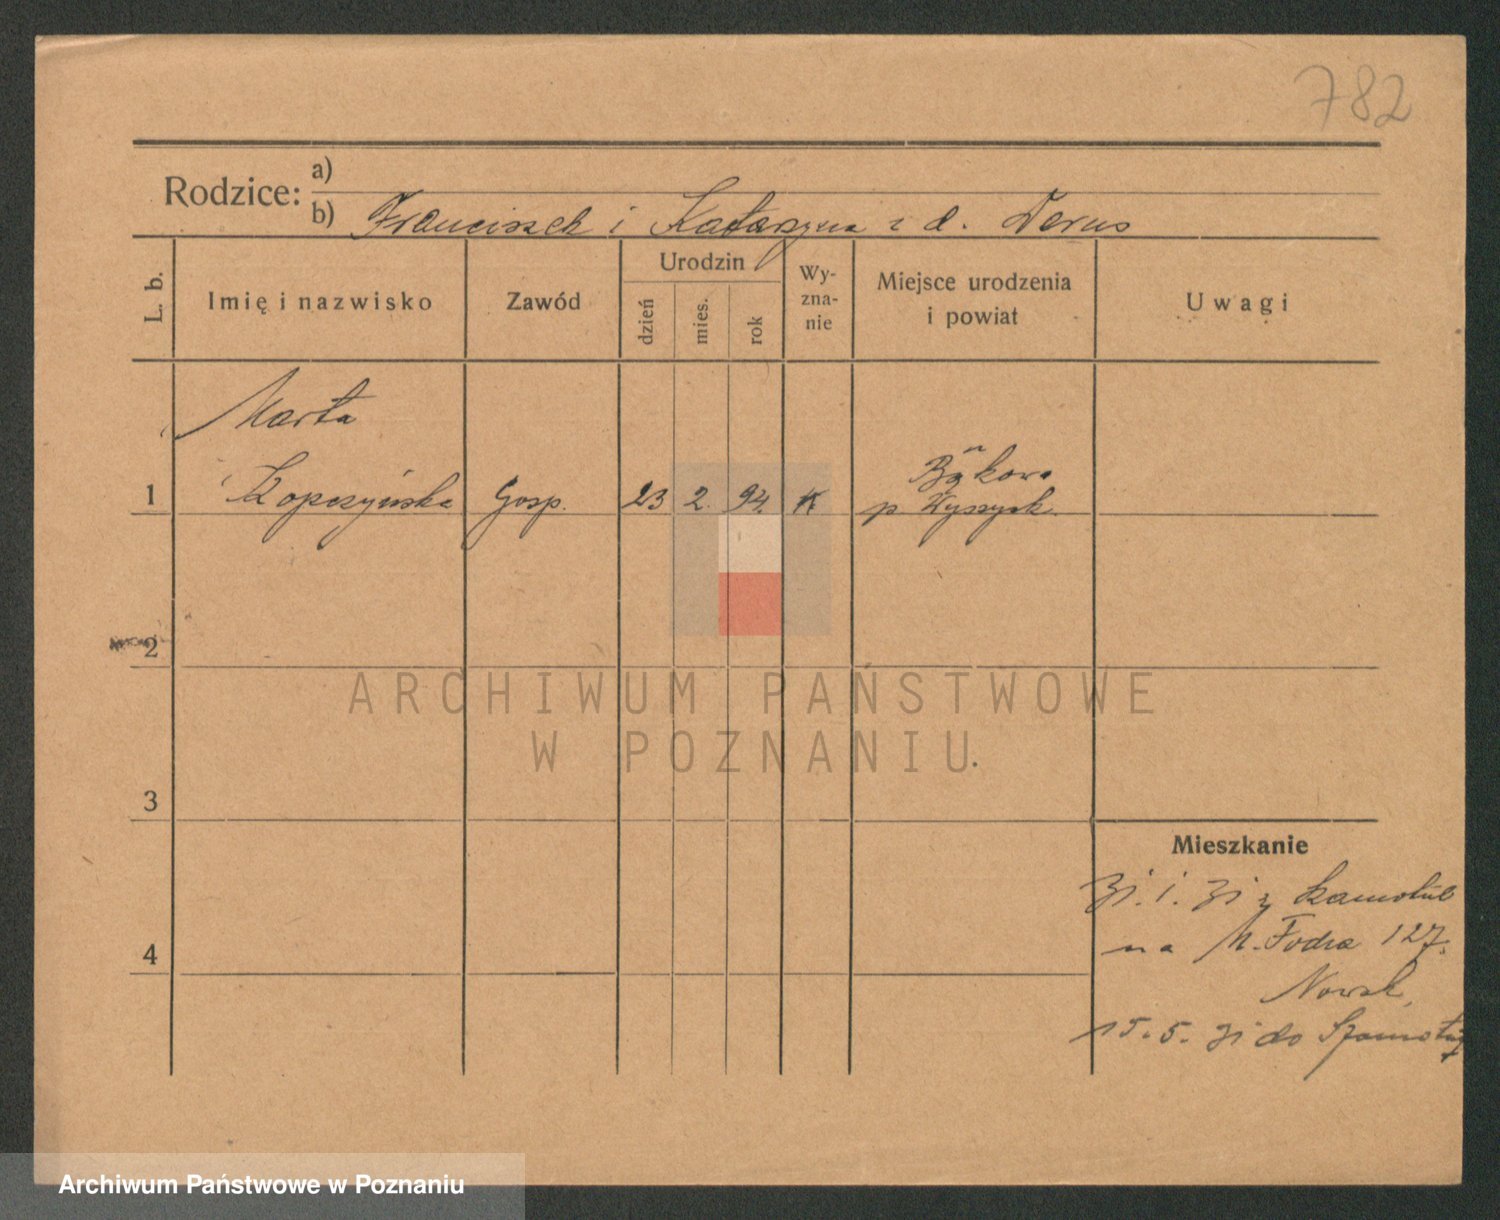 782
Rodzice: a)
b) Franciszek i Katarzyna z d. Derus
L. b.
Imię i nazwisko
Zawód
Urodzin
dzień
mies.
rok
Wy-
zna-
nie
Miejsce urodzenia
i powiat
Uwagi
Marta
1 Kopczyńska Gosp. 23 2. 94. K
p. Wyrzysk
2
3
4
Mieszkanie
31. 1. 31 z
na 127.
15. 5. 31 do Szamotuł
ARCHIWUM PAŃSTWOWE
W POZNANIU
Archiwum Państwowe w Poznaniu